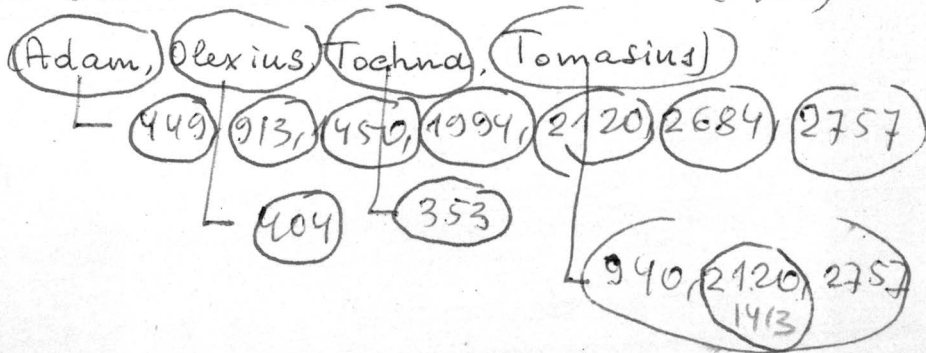 (Adam, Olexius, Tochna, Tomasius)
449, 913, 1450, 1994, 2120, 2684, 2757
404 353
940, 2120, 2757
1413